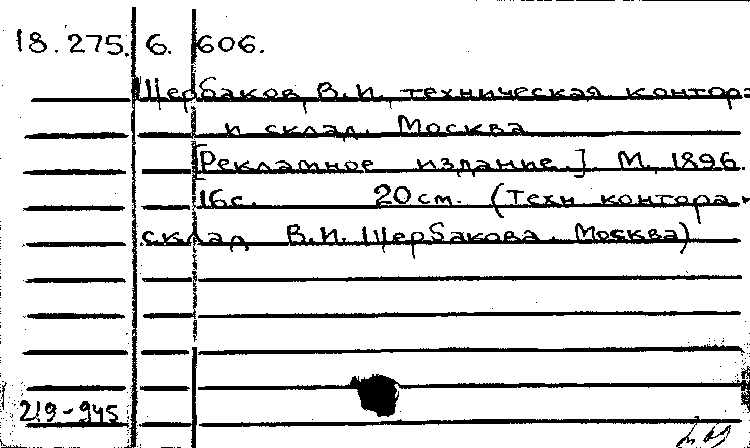 18.275.6.606.
Щербаков, В.И., техническая контора
и склад. Москва
[Рекламное издание.] М., 1896.
16с. 20см. (Техн контора.
склад В.И. Щербакова. Москва)
219-945